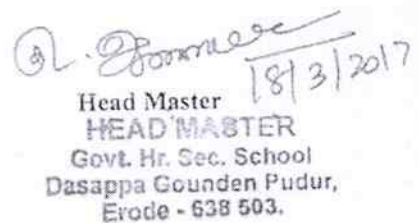 18/3/2017
Head Master
HEAD MASTER
Govt. Hr. Sec. School
Dasappa Gounden Pudur,
Erode - 638 503.